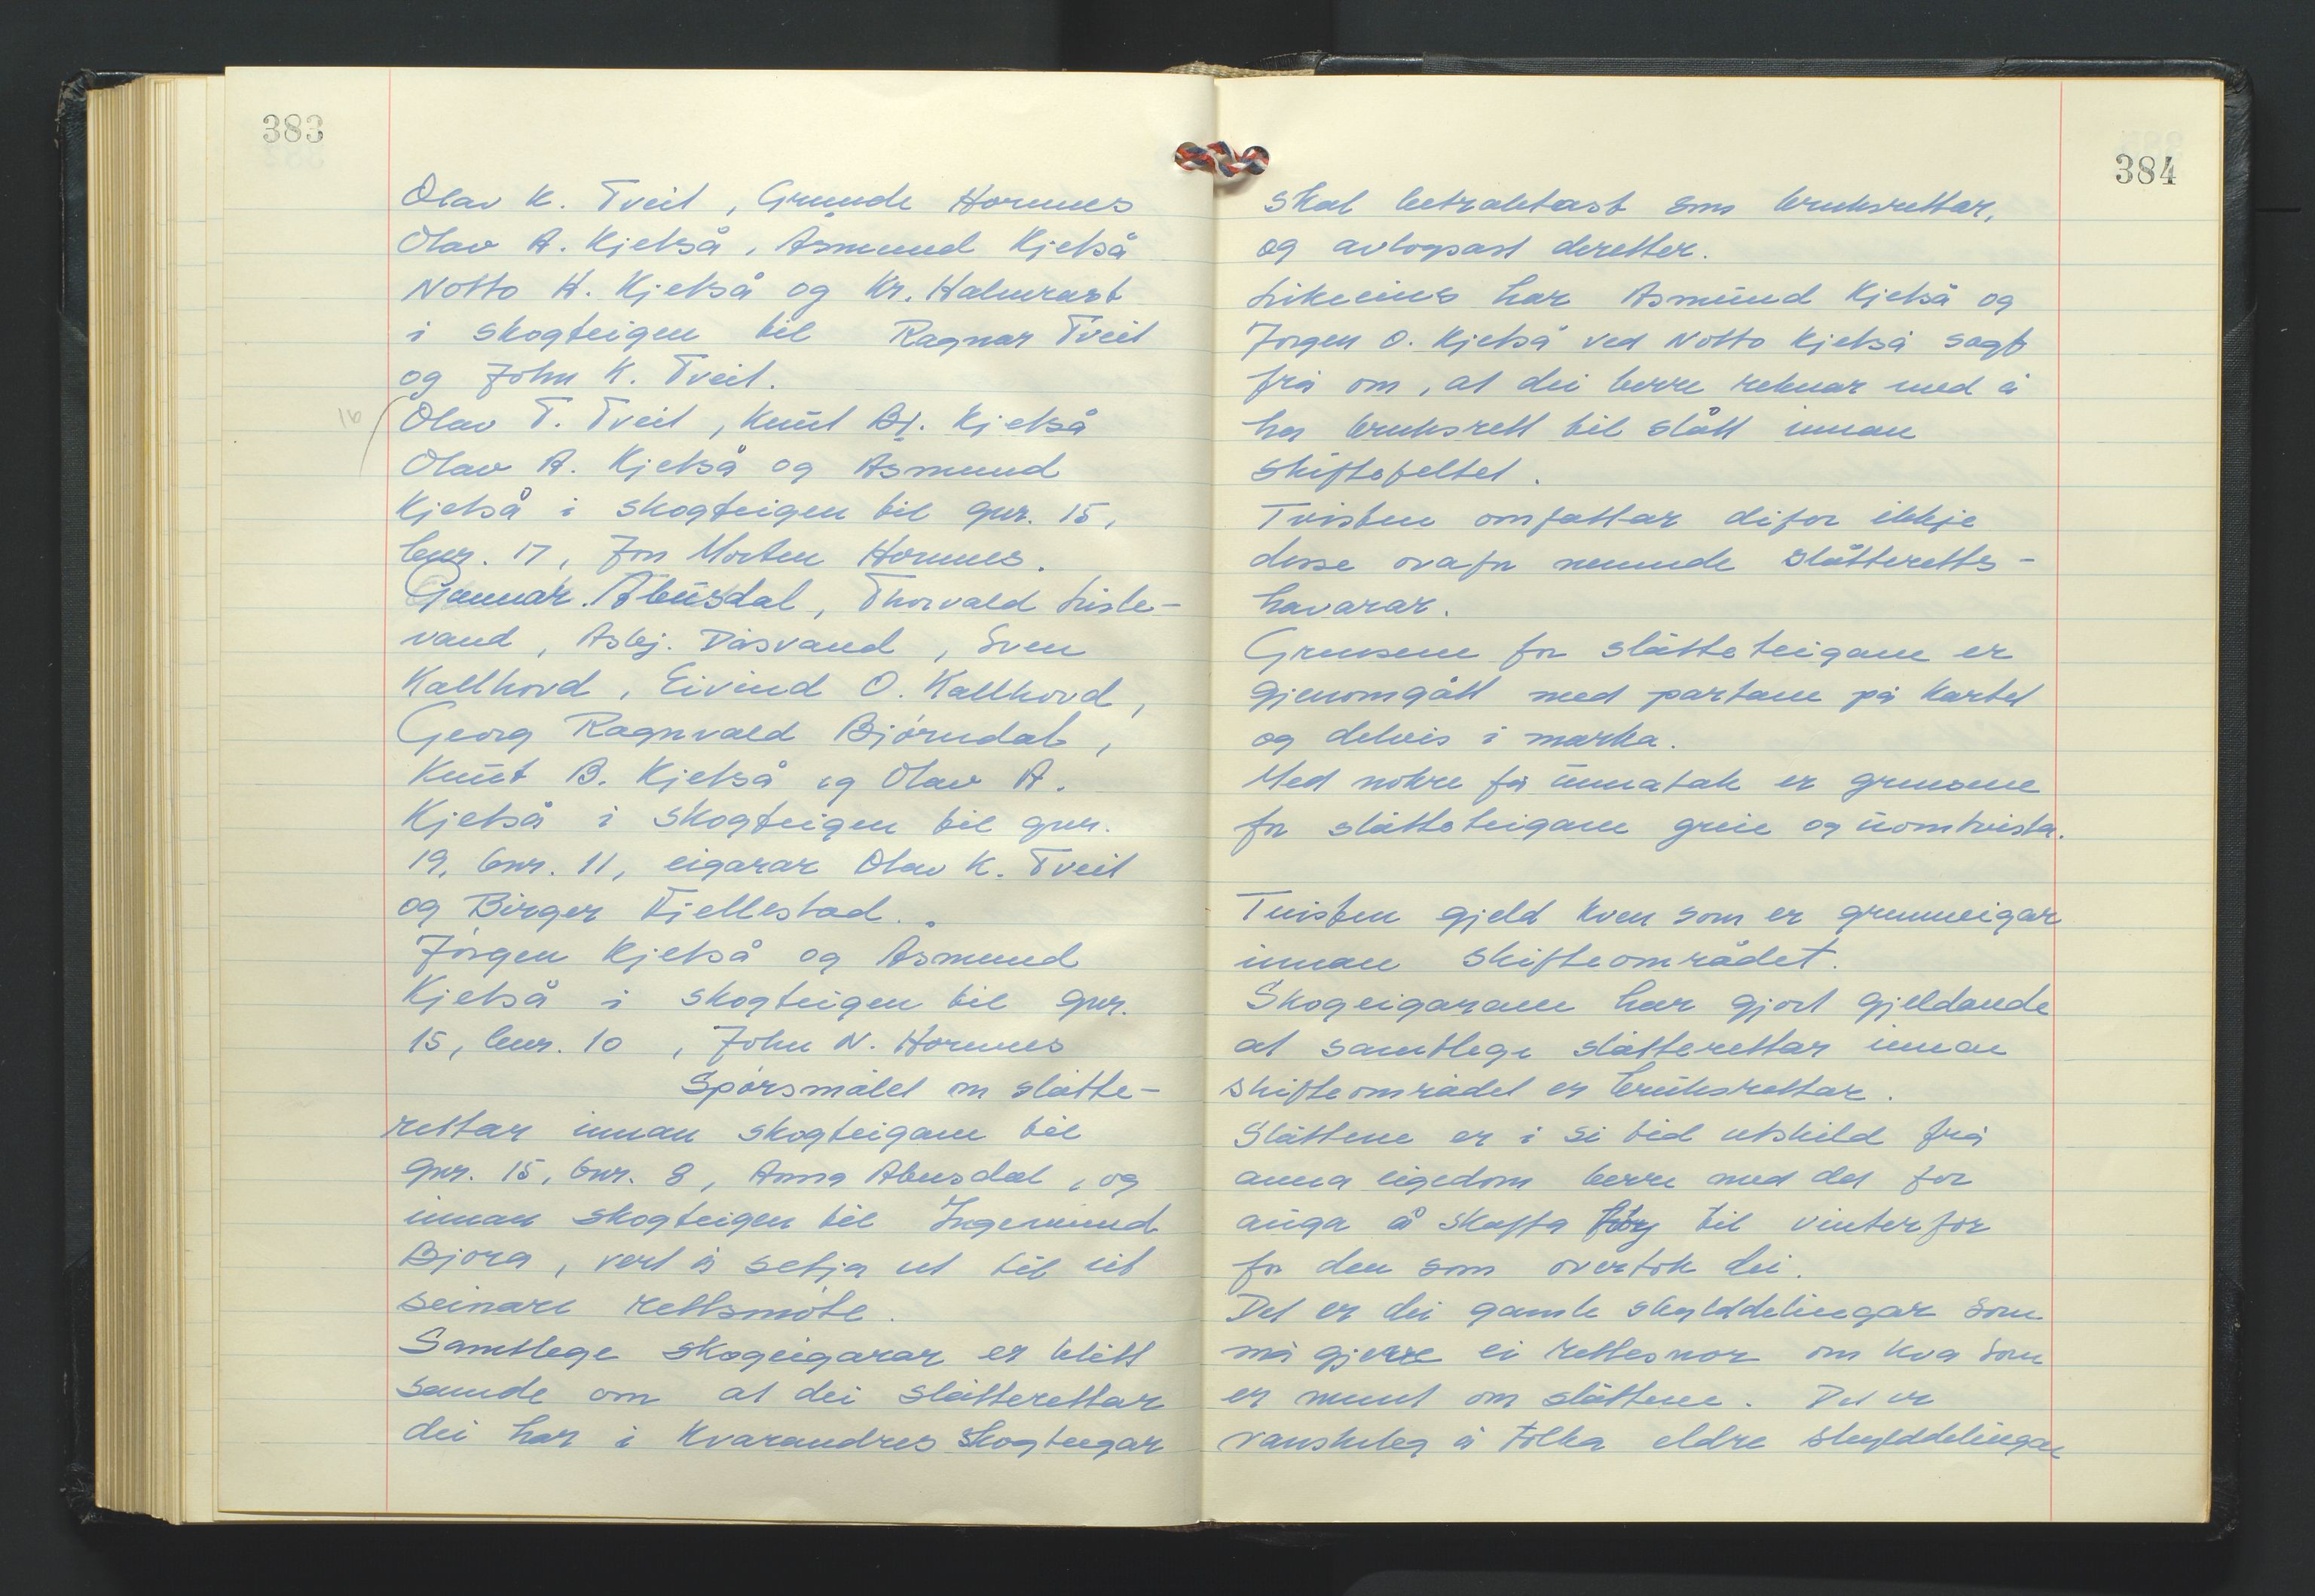 383
Olav K. Tveit, Gunde Hornnes
Olav A. Kjetså, Åsmund Kjetså
Notto H. Kjetså og Kr. Halmrast
i skogteigen til Ragnar Tveit
og John K. Tveit.
16
Olav T. Tveit, Knut B. Kjetså
Olav A. Kjetså og Asmund
Kjetså i skogteigen til gnr. 15,
bnr. 17, Jon Morten Hornnes.
Gunnar Abusdal, Thorvald Liste-
vand, Asbj. Dåsvand, Sven
Kallhovd, Eivind O. Kallhovd,
Georg Ragnvald Bjørndal,
Knut B. Kjetså og Olav A.
Kjetså i skogteigen til gnr.
19, bnr. 11, eigarar Olav K. Tveit
og Birger Fjellestad.
Jørgen Kjetså og Åsmund
Kjetså i skogteigen til gnr.
15, bnr. 10, John N. Hornnes
Spørsmålet om slåtte-
rettar innan skogteigane til
gnr. 15, bnr. 8, Anna Abusdal, og
innan skogteigen til Ingemund
Bjorå, vert å setja ut til eit
seinare rettsmøte.
Samtlege skogeigarar er blitt
samde om at dei slåtterettar
dei har i kvarandres skogteigar
384
skal betraktast som bruksrettar,
og avløysast deretter.
Likeeins har Asmund Kjetså og
Jørgen O. Kjetså ved Notto Kjetså sagt
frå om, at dei berre reknar med å
ha bruksrett til slått innan
skiftefeltet.
Tvisten omfattar difor ikkje
desse ovafor nemnde slåtteretts-
havarar.
Grensene for slåtteteigane er
gjenomgått med partane på kartet
og delvis i marka.
Med nokre få unnatak er grensene
for slåtteteigane greie og uomtvista.
Tvisten gjeld kven som er grunneigar
innan skifteområdet.
Skogeigarane har gjort gjeldande
at samtlege slåtterettar innan
skifteområdet er bruksrettar.
Slåttene er i si tid utskild frå
anna eigedom berre med det for
auga å skaffa til vinterfor
for den som overtok dei.
Det er dei gamle skylddelingar som
må gjerre ei rettesnor om kva som
er ment om slåttene. Det er
vanskeleg å tolka eldre skylddelingar